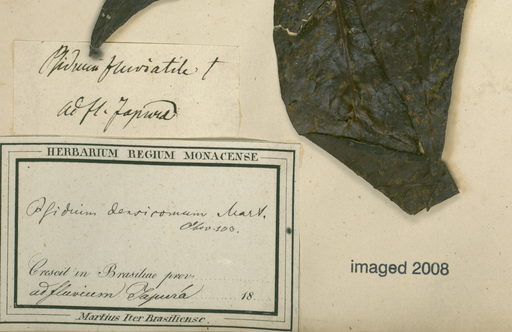 Psidium fluviatile †
ad fl. Japurá
HERBARIUM REGIUM MONACENSE
Psidium densicomum Mart.
Crescit in Brasiliae prov.
ad fluvium Japurá 18
Martius Iter Brasiliense.
imaged 2008